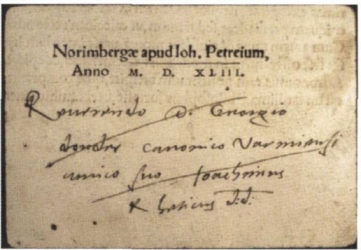 Norimbergæ apud Ioh. Petreium,
Anno M. D. XLIII.
Reuerendo D. Georgio
donder canonico Varmiensi
amico suo Joachimus
Rheticus d.d.